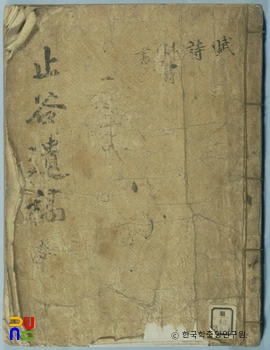 止谷遺稿
賦
詩
書
© 한국학중앙연구원